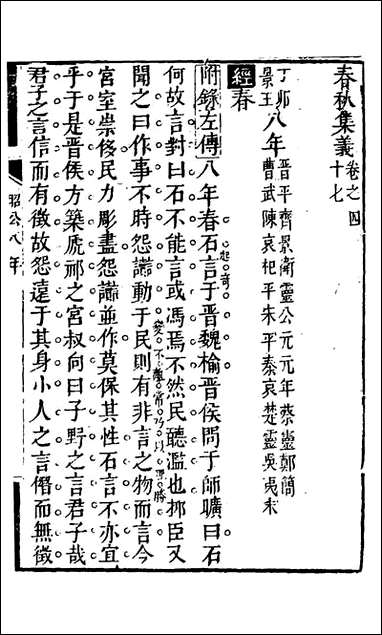 春秋集義卷之四
十七
丁卯
景王八年晉平齊景衛靈公元元年蔡靈鄭簡
曹武陳哀杞平宋平秦哀楚靈吳夷末
經春
附錄左傳八年春石言于晉魏榆晉侯問于師曠曰石
何故言對曰石不能言或馮焉不然民聽濫也抑臣又
聞之曰作事不時怨讟動于民則有非言之物而言今
宮室崇侈民力彫盡怨讟並作莫保其性石言不亦宜
乎于是晉侯方築虒祁之宮叔向曰子野之言君子哉
君子之言信而有徵故怨遠于其身小人之言僭而無徵
昭公八年
起奇